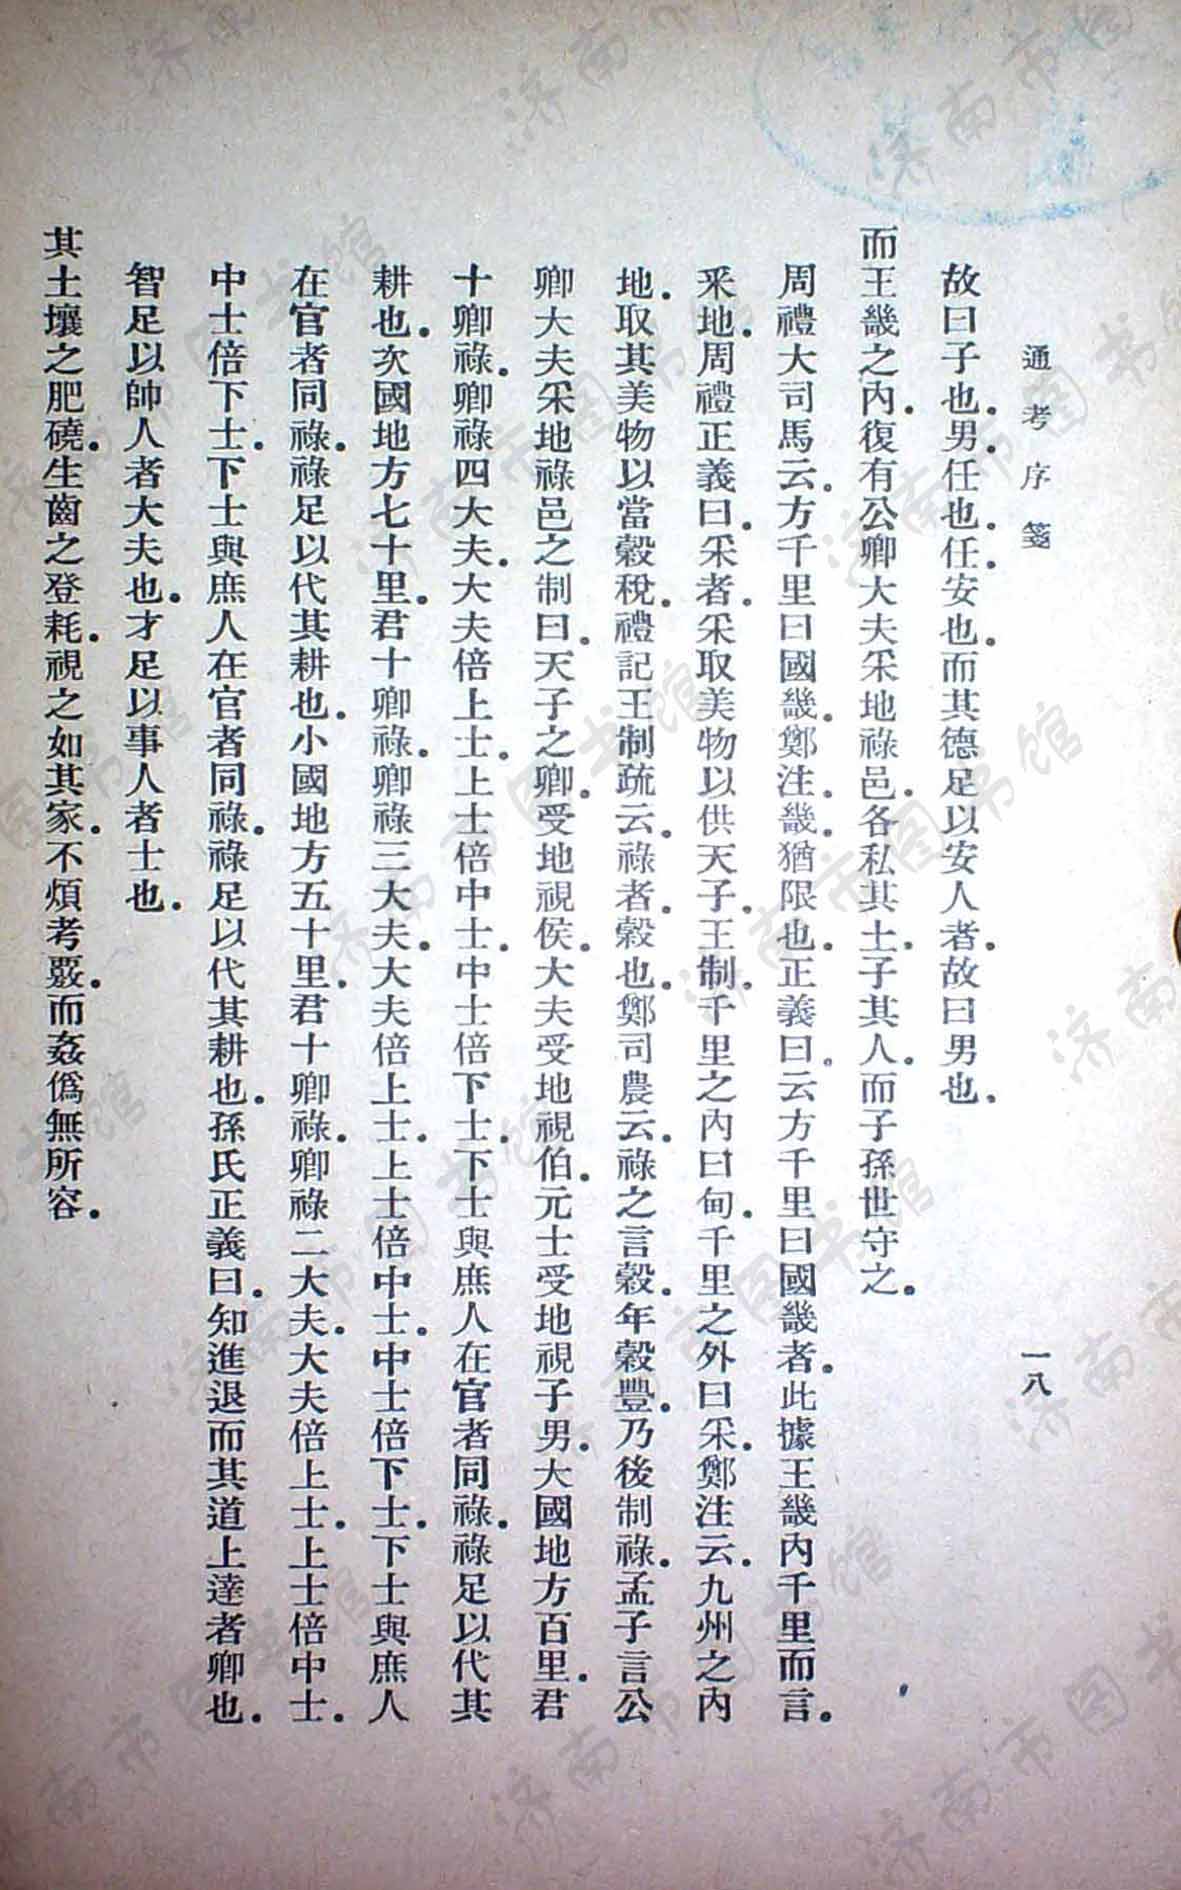 通考序箋　一八
故曰子也．男．任也．任．安也．而其德足以安人者．故曰男也．
而王畿之內．復有公卿大夫采地祿邑．各私其土．子其人．而子孫世守之．
周禮大司馬云．方千里曰國畿．鄭注．畿．猶限也．正義曰．云方千里曰國畿者．此據王畿內千里而言．
采地．周禮正義曰．采者．采取美物以供天子．王制．千里之內曰甸．千里之外曰采．鄭注云．九州之內
地．取其美物以當穀稅．禮記王制疏云．祿者．穀也．鄭司農云．祿之言穀．年穀豐．乃後制祿．孟子言公
卿大夫采地祿邑之制曰．天子之卿．受地視侯．大夫受地視伯．元士受地視子男．大國地方百里．君
十卿祿．卿祿四大夫．大夫倍上士．上士倍中士．中士倍下士．下士與庶人在官者同祿．祿足以代其
耕也．次國地方七十里．君十卿祿．卿祿三大夫．大夫倍上士．上士倍中士．中士倍下士．下士與庶人
在官者同祿．祿足以代其耕也．小國地方五十里．君十卿祿．卿祿二大夫．大夫倍上士．上士倍中士．
中士倍下士．下士與庶人在官者同祿．祿足以代其耕也．孫氏正義曰．知進退而其道上達者卿也．
智足以帥人者大夫也．才足以事人者士也．
其土壤之肥磽．生齒之登耗．視之如其家．不煩考覈．而姦僞無所容．
济南市图书馆